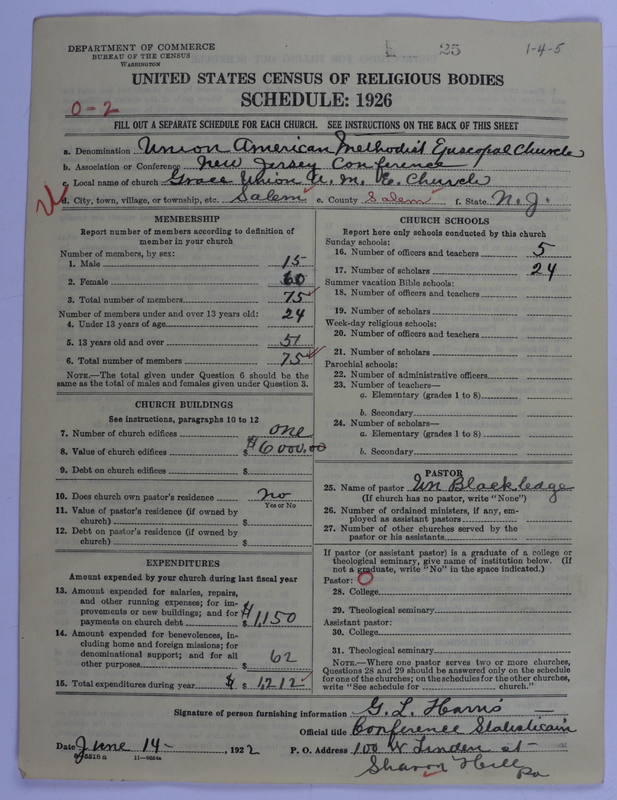 DEPARTMENT OF COMMERCE
BUREAU OF THE CENSUS
WASHINGTON
25
1-4-5
UNITED STATES CENSUS OF RELIGIOUS BODIES
SCHEDULE: 1926
0-2
FILL OUT A SEPARATE SCHEDULE FOR EACH CHURCH. SEE INSTRUCTIONS ON THE BACK OF THIS SHEET
a. Denomination Union American Methodist Episcopal Church
b. Association or Conference New Jersey Conference
c. Local name of church Grace Union A. M. E. Church
d. City, town, village, or township, etc. Salem e. County Salem f. State N. J.
MEMBERSHIP
Report number of members according to definition of
member in your church
Number of members, by sex:
1. Male 15
2. Female 60
3. Total number of members 75
Number of members under and over 13 years old:
4. Under 13 years of age 24
5. 13 years old and over 51
6. Total number of members 75
NOTE.—The total given under Question 6 should be the
same as the total of males and females given under Question 3.
CHURCH BUILDINGS
See instructions, paragraphs 10 to 12
7. Number of church edifices one
8. Value of church edifices $ $6000.00
9. Debt on church edifices $
10. Does church own pastor's residence no
Yes or No
11. Value of pastor's residence (if owned by
church) $
12. Debt on pastor's residence (if owned by
church) $
EXPENDITURES
Amount expended by your church during last fiscal year
13. Amount expended for salaries, repairs,
and other running expenses; for im-
provements or new buildings; and for
payments on church debt $ $1,150
14. Amount expended for benevolences, in-
cluding home and foreign missions; for
denominational support; and for all
other purposes $ 62
15. Total expenditures during year $ $ 1,212
CHURCH SCHOOLS
Report here only schools conducted by this church
Sunday schools:
16. Number of officers and teachers 5
17. Number of scholars 24
Summer vacation Bible schools:
18. Number of officers and teachers
19. Number of scholars
Week-day religious schools:
20. Number of officers and teachers
21. Number of scholars
Parochial schools:
22. Number of administrative officers
23. Number of teachers—
a. Elementary (grades 1 to 8)
b. Secondary
24. Number of scholars—
a. Elementary (grades 1 to 8)
b. Secondary
PASTOR
25. Name of pastor Wm Blackledge
(If church has no pastor, write "None")
26. Number of ordained ministers, if any, em-
ployed as assistant pastors
27. Number of other churches served by the
pastor or his assistants
If pastor (or assistant pastor) is a graduate of a college or
theological seminary, give name of institution below. (If
not a graduate, write "No" in the space indicated.)
Pastor: O
28. College
29. Theological seminary
Assistant pastor:
30. College
31. Theological seminary
NOTE.—Where one pastor serves two or more churches,
Questions 28 and 29 should be answered only on the schedule
for one of the churches; on the schedules for the other churches,
write "See schedule for church."
Signature of person furnishing information G. L. Harris
Official title Conference Statisticain
Date June 14 - , 1922 P. O. Address 100 W. Linden st -
Sharon Hill
Pa
11—9264a